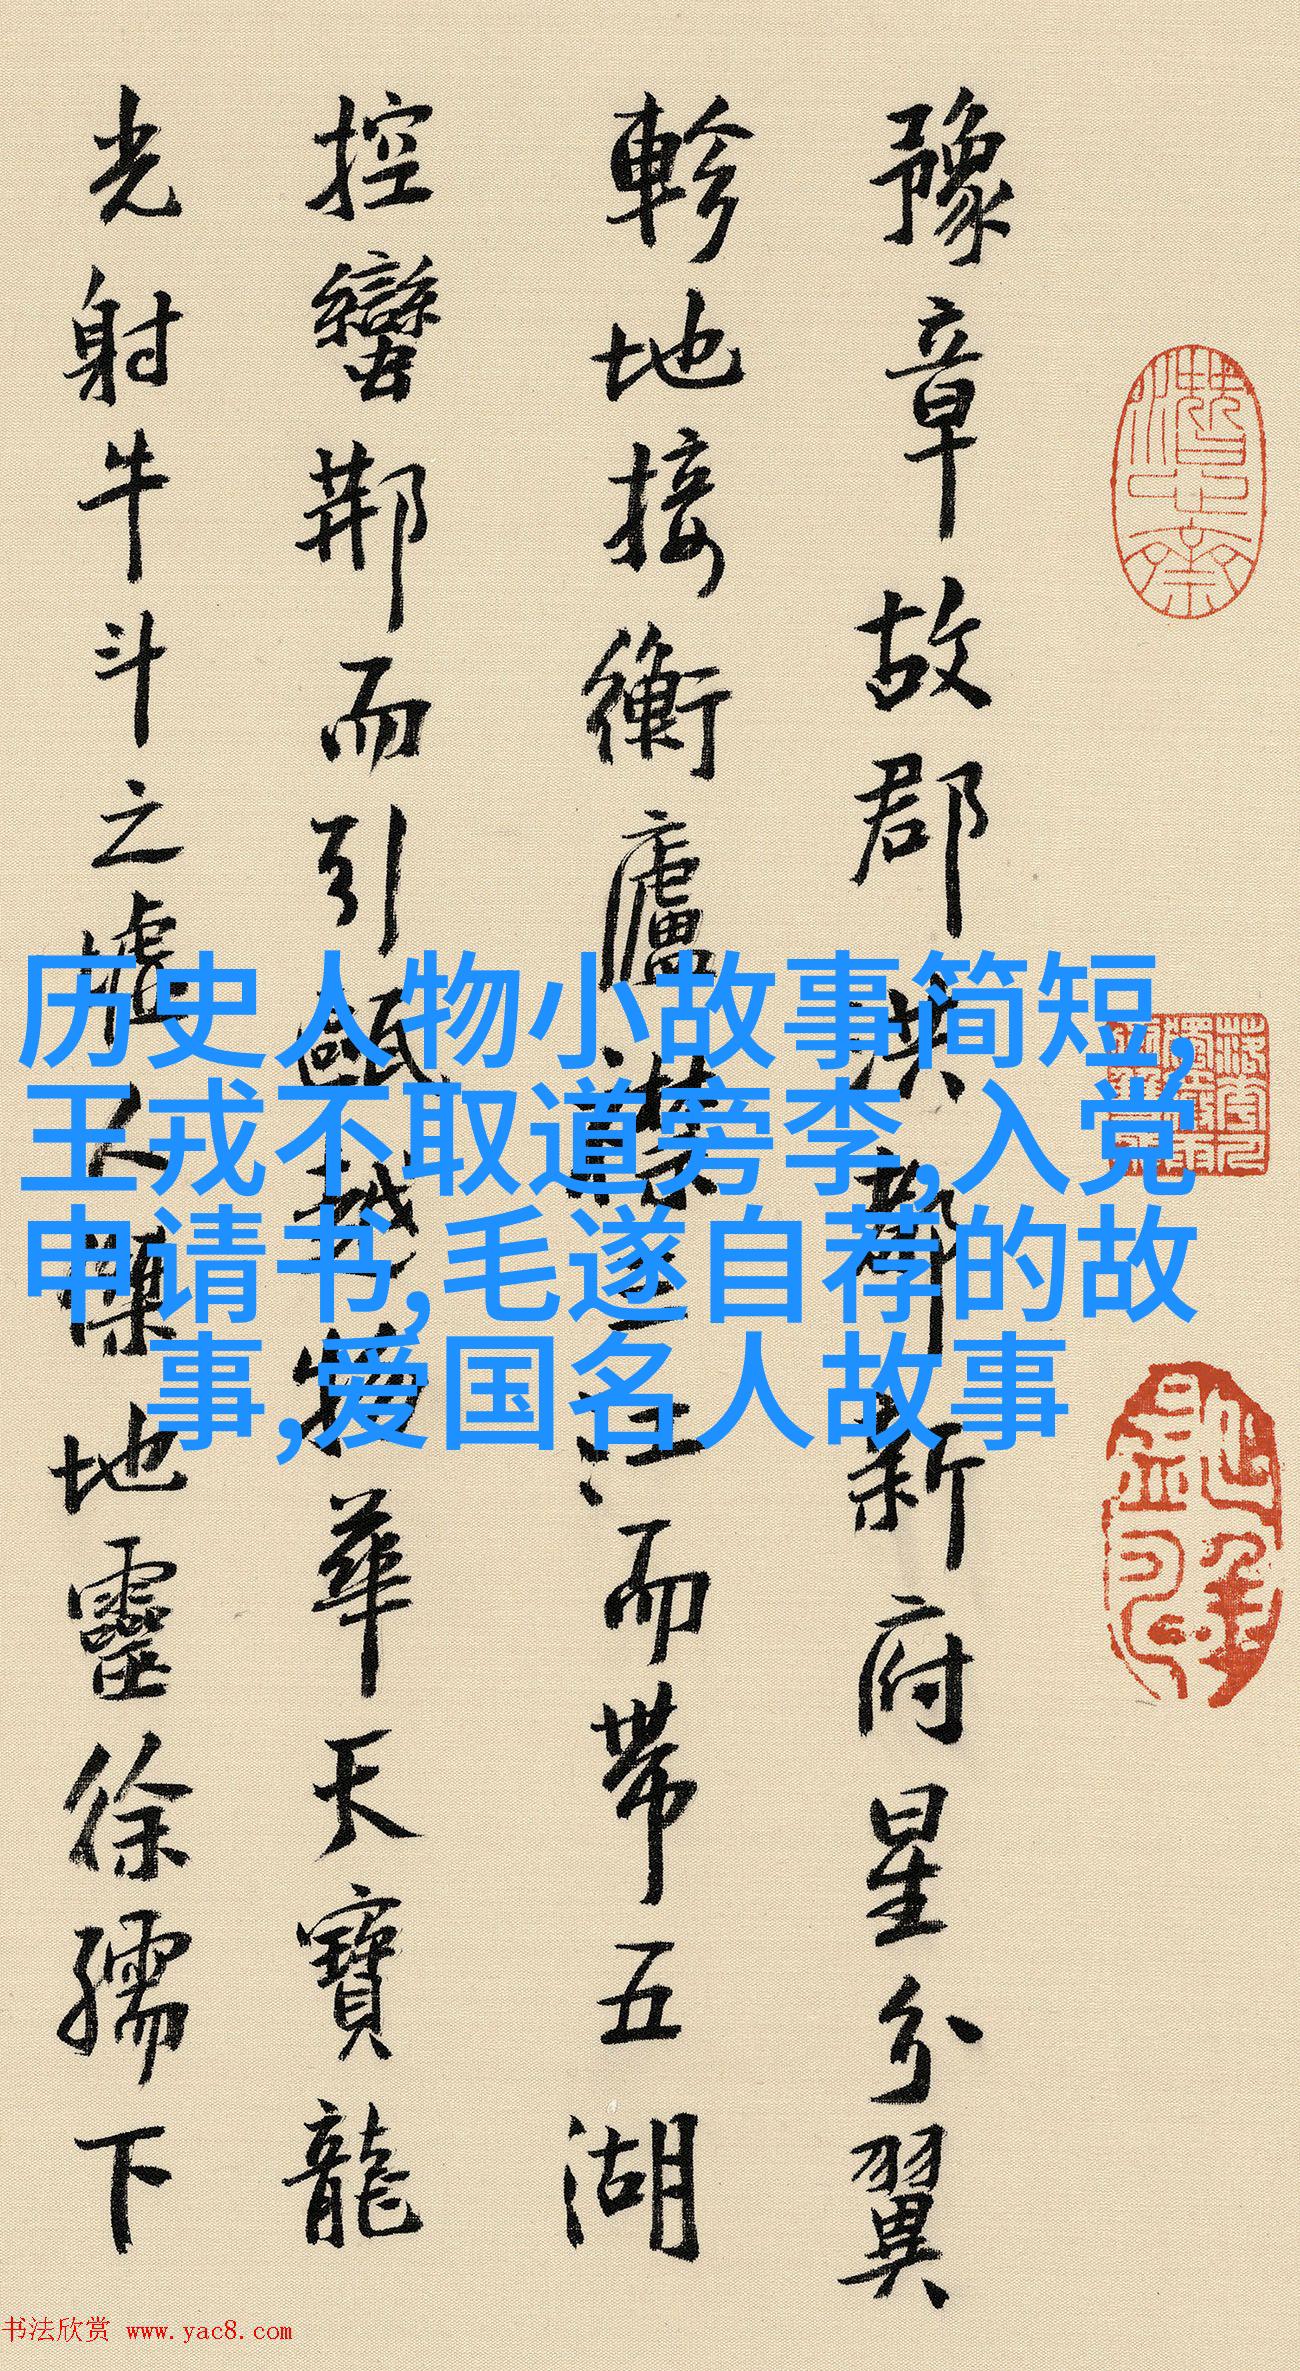 豫章故郡洪都新府星分翼
軫地接衡廬襟三江而帶五湖
控蠻荊而引甌越物華天寶龍
光射牛斗之墟人傑地靈徐孺下
历史人物小故事简短,
王戎不取道旁李,入党
申请书,毛遂自荐的故
事,爱国名人故事
书法欣赏 www.yac8.com